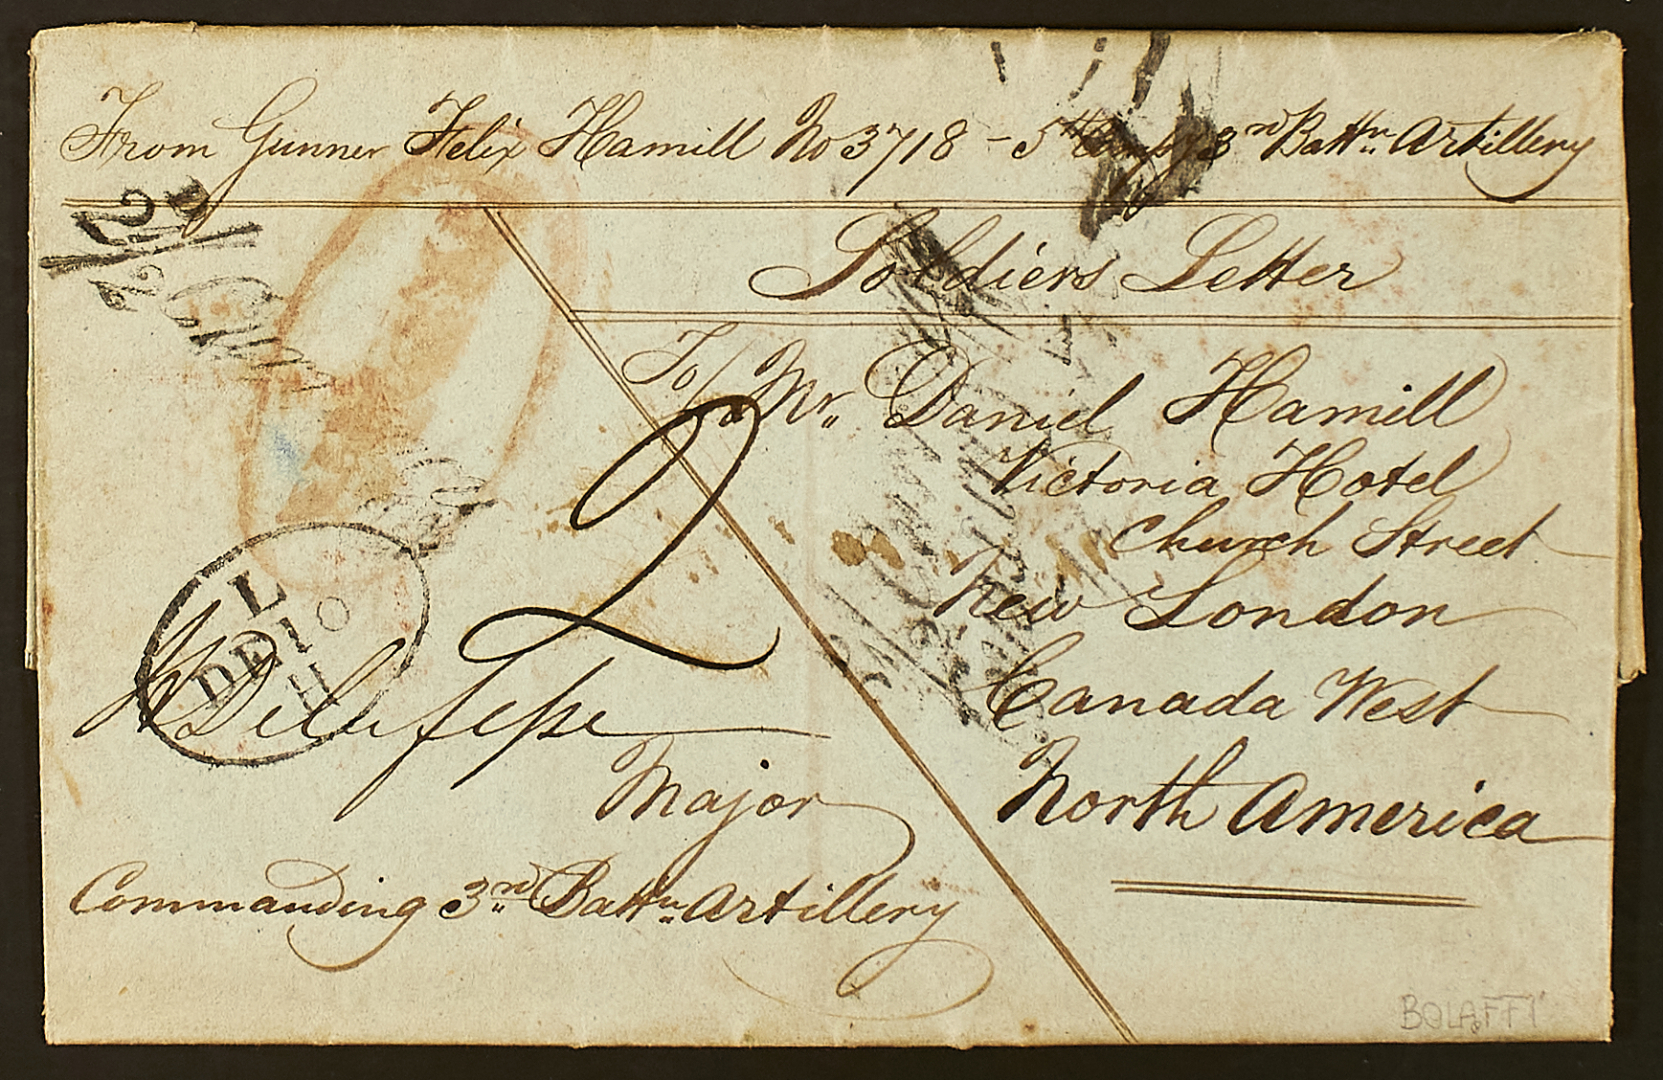 From Gunner Felix Hamill No 3718 - 5th Compy 3rd Battn Artillery
Soldiers Letter
To/ Mr. Daniel Hamill
Victoria Hotel
Church Street
New London
Canada West
North America
2
L
DE 10
H
Major
Commanding 3rd Battn Artillery
BOLAFFI